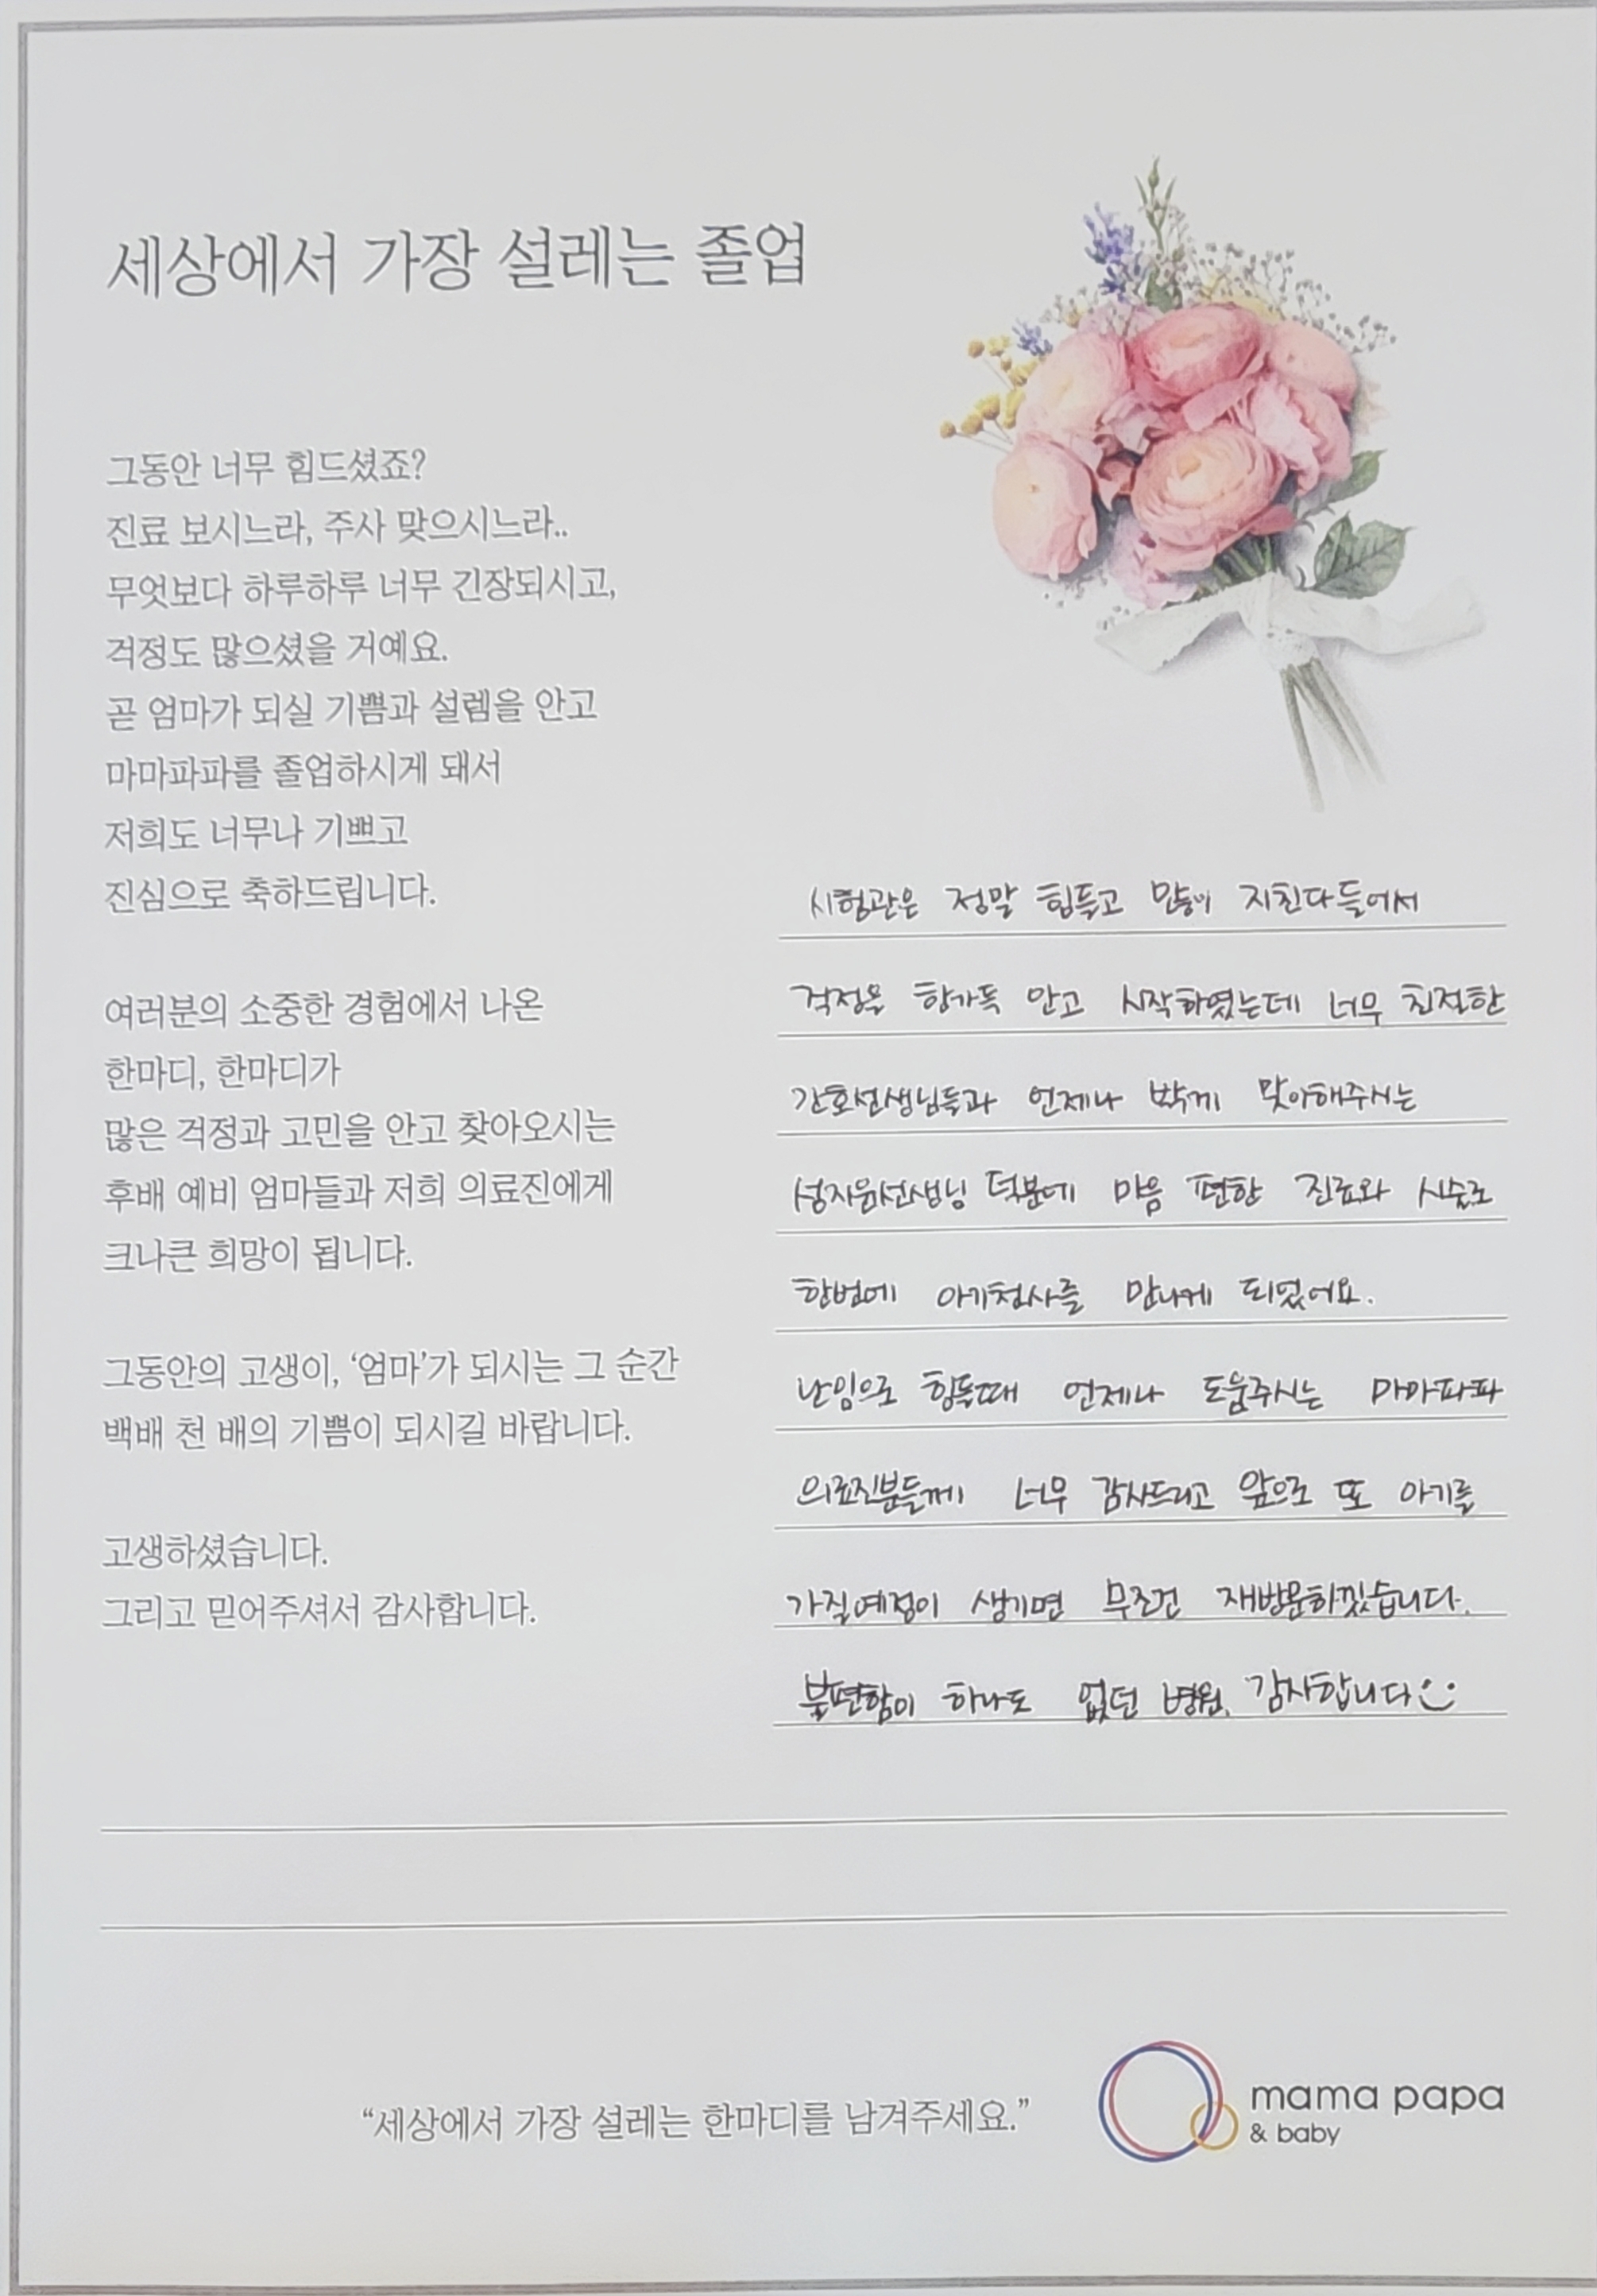 세상에서 가장 설레는 졸업
그동안 너무 힘드셨죠?
진료 보시느라, 주사 맞으시느라..
무엇보다 하루하루 너무 긴장되시고,
걱정도 많으셨을 거예요.
곧 엄마가 되실 기쁨과 설렘을 안고
마마파파를 졸업하시게 돼서
저희도 너무나 기쁘고
진심으로 축하드립니다.
여러분의 소중한 경험에서 나온
한마디, 한마디가
많은 걱정과 고민을 안고 찾아오시는
후배 예비 엄마들과 저희 의료진에게
크나큰 희망이 됩니다.
그동안의 고생이, ‘엄마’가 되시는 그 순간
백배 천 배의 기쁨이 되시길 바랍니다.
고생하셨습니다.
그리고 믿어주셔서 감사합니다.
시험관은 정말 힘들고 많이 지친다 들어서
걱정을 한가득 안고 시작하였는데 너무 친절한
간호선생님들과 언제나 밝게 맞아해주시는
성지윤선생님 덕분에 마음 편한 진료와 시술로
한번에 아기천사를 만나게 되었어요.
난임으로 힘들때 언제나 도움주시는 마마파파
의료진분들께 너무 감사드리고 앞으로 또 아기를
가질예정이 생기면 무조건 재방문하겠습니다.
불편함이 하나도 없던 병원, 감사합니다
“세상에서 가장 설레는 한마디를 남겨주세요.”
mama papa
& baby